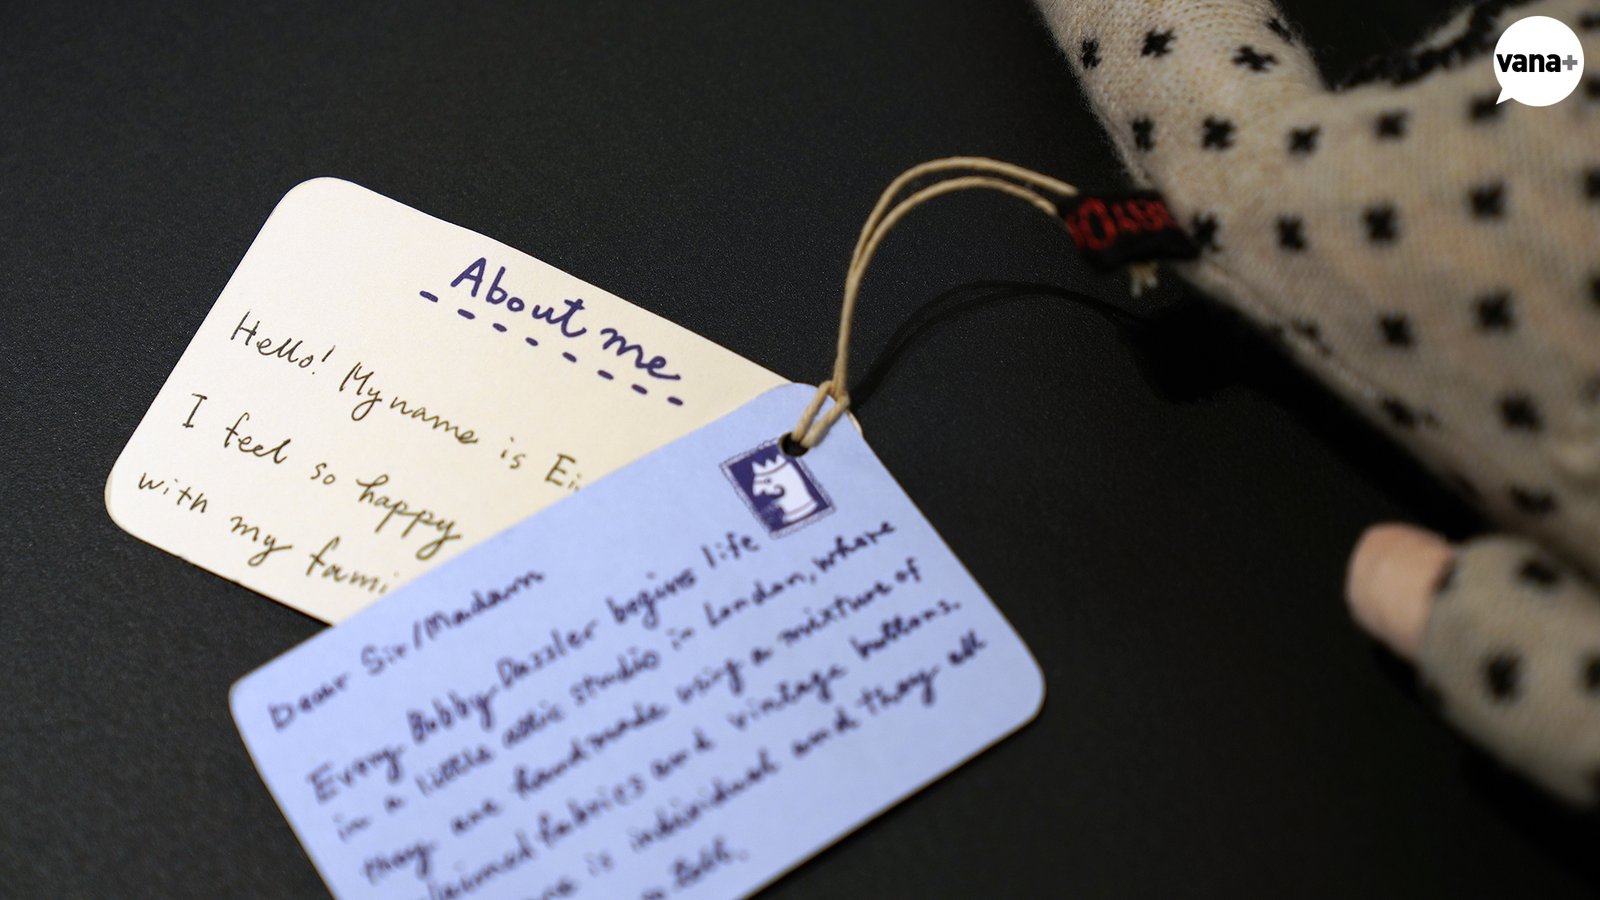 vana+
About me
Hello! My name is
I feel so happy
with my fami
Dear Sir/Madam
Every Bobby Dazzler begins life
in a little attic studio in London, where
They are handmade using a mixture of
fabrics and vintage buttons.
is individual and they all